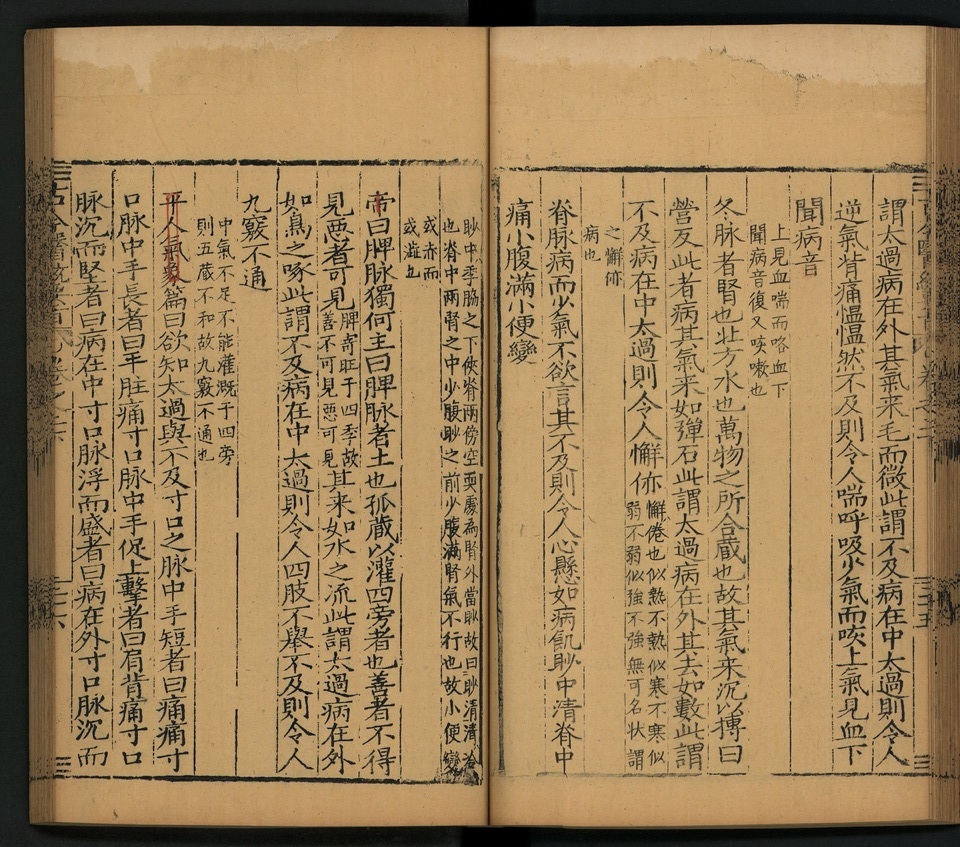 謂太過病在外其氣来毛而微此謂不及病在中太過則令人
逆氣背痛慍慍然不及則令人喘呼吸少氣而咳上氣見血下
聞病音
上見血喘而咯血下
聞病音復又咳嗽也
冬脉者腎也北方水也萬物之所合蔵也故其氣来沉以搏曰
營反此者病其氣来如彈石此謂太過病在外其去如數此謂
不及病在中太過則令人懈㑊
懈倦也似熱不熱似寒不寒似
弱不弱似強不強無可名状謂
之懈㑊
病也
脊脉病而少氣不欲言其不及則令人心懸如病飢䏚中清脊中
痛小腹滿小便變
䏚中季脇之下俠脊兩傍空耎處為腎外當䏚故曰䏚清清冷
也脊中兩腎之中少腹䏚之前少腹滿腎氣不行也故小便變
或赤而
或澁也
帝曰脾脉獨何主曰脾脉者土也孤蔵以灌四旁者也善者不得
見惡者可見
脾寄旺于四季故
善不可見惡可見
其来如水之流此謂太過病在外
如鳥之啄此謂不及病在中太過則令人四肢不舉不及則令人
九竅不通
中氣不足不能灌溉于四旁
則五蔵不和故九竅不通也
平人氣象篇曰欲知太過與不及寸口之脉中手短者曰痛痛寸
口脉中手長者曰𠮷胫痛寸口脉中手促上擊者曰肩背痛寸口
脉沉而堅者曰病在中寸口脉浮而盛者曰病在外寸口脉沉而